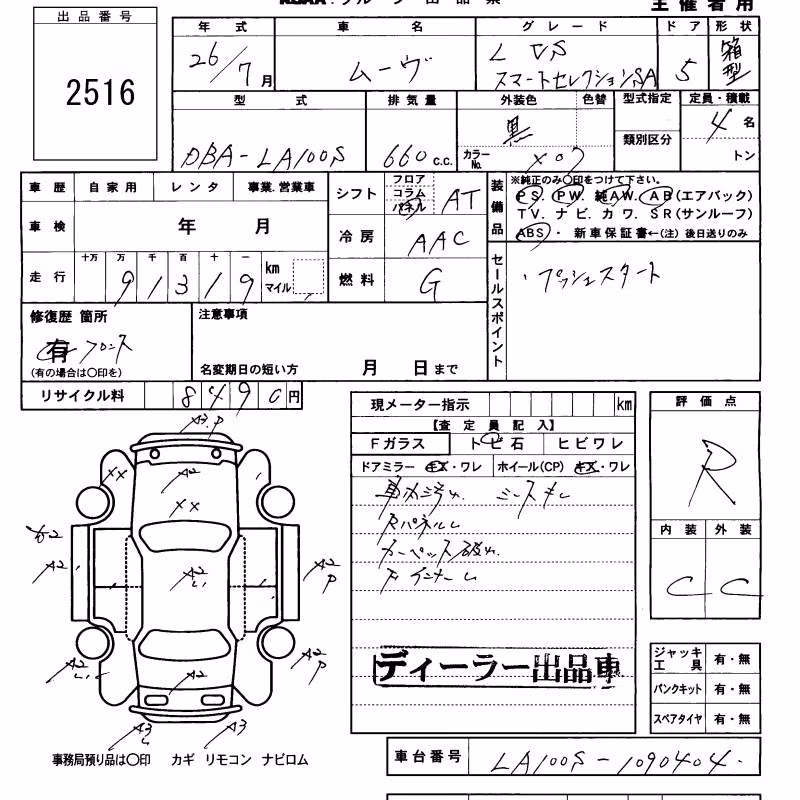 主催者用
出品番号
2516
年式 車名 グレード ドア 形状
26/7月 ムーヴ L VS スマートセレクションSA 5 箱型
型式 排気量 外装色 色替 型式指定 定員・積載
類別区分
DBA-LA100S 660c.c. 黒 カラーNo. X07 4名
トン
車歴 自家用 レンタ 事業.営業車
車検 年 月
走行 十万 万 千 百 十 一
9 1 3 1 9 km マイル
シフト フロア コラム パネル AT
冷房 AAC
燃料 G
装備品
※純正のみ〇印をつけて下さい。
PS. PW. 純AW. AB(エアバック)
TV. ナビ. カワ. SR(サンルーフ)
ABS・新車保証書←(注)後日送りのみ
セールスポイント
・プッシュスタート
修復歴 箇所
有 フロント
(有の場合は〇印を)
注意事項
名変期日の短い方 月 日まで
リサイクル料 8490円
現メーター指示 km
【査定員記入】
Fガラス トビ石 ヒビワレ
ドアミラー キズ・ワレ ホイール(CP) キズ・ワレ
カーペット破れ
ディーラー出品車
評価点
R
内装 外装
C C
ジャッキ工具 有・無
パンクキット 有・無
スペアタイヤ 有・無
A3.P
XX
A2
XX
A2
A2
A2
P
A2
A2
P
A2
A3
A3
事務局預り品は〇印 カギ リモコン ナビロム
車台番号 LA100S-1090404.